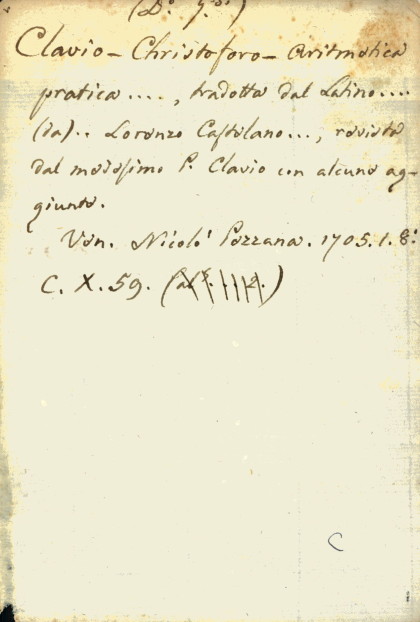 (D.º 7.
Clavio - Christoforo - Aritmetica
pratica ...., tradotta dal Latino....
(da).. Lorenzo Castelano..., revista
dal medesimo P. Clavio con alcune ag-
giunte.
Ven. Nicolò Pezzana. 1705. 1. 8.º
C. X. 59.
C